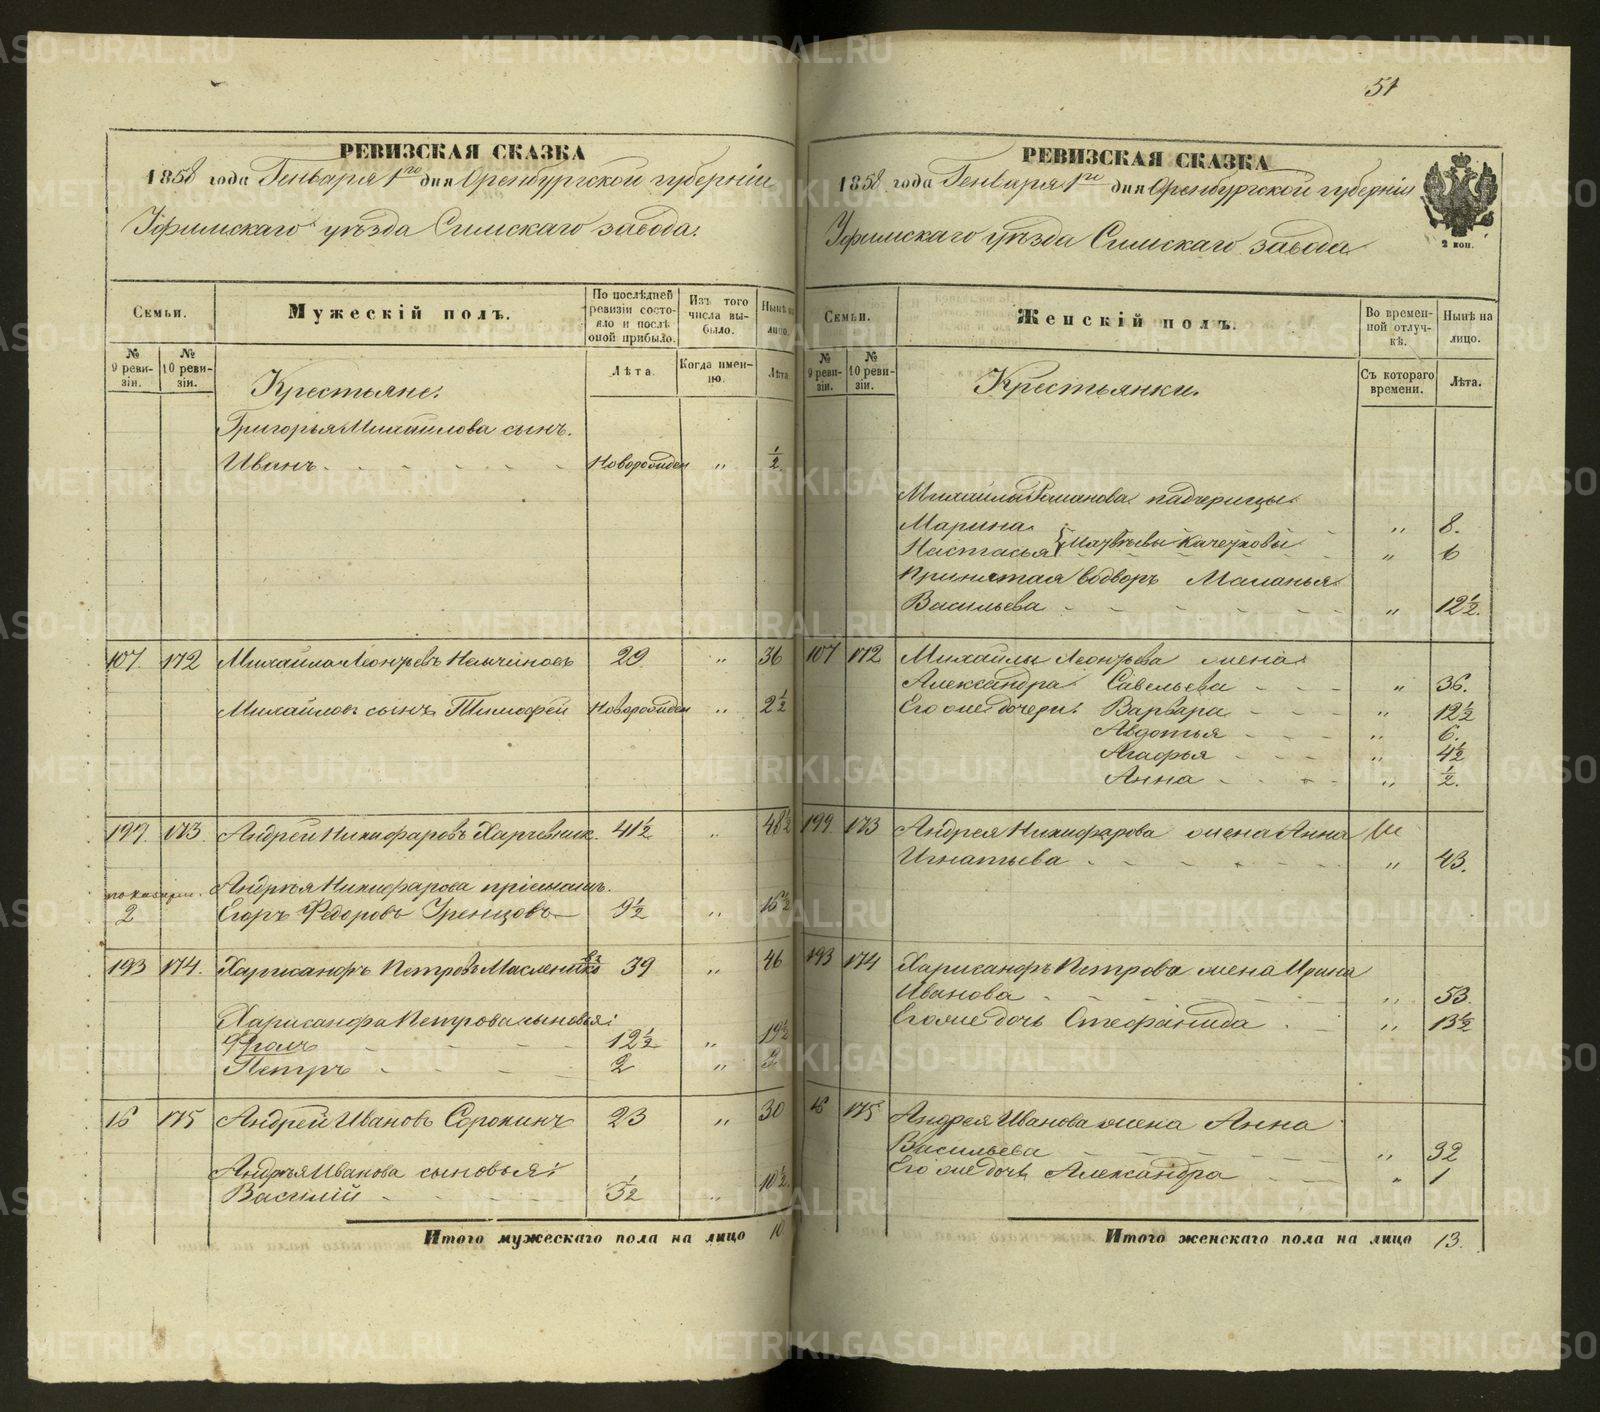 51
РЕВИЗСКАЯ СКАЗКА
1858 года Генваря 1го дня Оренбургской губернiи
Уфимскаго уѣзда Симскаго завода.
Семьи.
Мужескiй полъ.
По послѣдней ревизiи состояло и послѣ оной прибыло.
Изъ того числа выбыло.
Нынѣ на лицо.
№ 9 ревизiи.
№ 10 ревизiи.
Лѣта.
Когда именно.
Лѣта.
Крестьяне.
Григорья Михайлова сынъ.
Иванъ новорожден „ ½
107. 172 Михайло Леонтьевъ 29 „ 36
Михайловъ сынъ Тимофей новорожден „ 2½
197. 173. Андрей Никифаровъ Харчевник. 41½ „ 48½
Андрея Никифарова прiемышъ.
2 Егоръ Федоровъ 9½ „ 16½
193 174. Харисанфъ Петровъ Маслеников 39 „ 46
Харисанфа Петрова сыновья:
Фролъ 12½ „ 19½
Петръ 2 „
16 175 Андрей Ивановъ Сорокинъ 23 „ 30
Андрея Иванова сыновья:
Василiй 3½ „ 10½
Итого мужескаго пола на лицо 10.
РЕВИЗСКАЯ СКАЗКА
1858 года Генваря 1го дня Оренбургской губернiи
Уфимскаго уѣзда Симскаго завода
2 коп.
Семьи.
Женскiй полъ.
Во временной отлучкѣ.
Нынѣ на лицо.
№ 9 ревизiи.
№ 10 ревизiи.
Съ котораго времени.
Лѣта.
Крестьянки.
Михайлы Романова падчерицы.
Марина „ 8.
Настасья Матвѣевы „ 6
Принятая во дворъ Маланья
Васильева „ 12½.
107 172 Михайлы Леонтьева жена
Александра Савельева „ 36.
Его же дочери: Варвара „ 12½
Авдотья „ 6.
Агафья „ 4½
Анна „ ½.
199. 173 Андрея Никифарова жена Анна
Игнатьева „ 43.
193 174 Харисанфъ Петрова жена Ирина
Иванова „ 53.
Его же дочь Стефанида „ 13½
16 175 Андрея Иванова жена Анна
Васильева „ 32
Его же дочь Александра „ 1
Итого женскаго пола на лицо 13.
METRIKI.GASO-URAL.RU